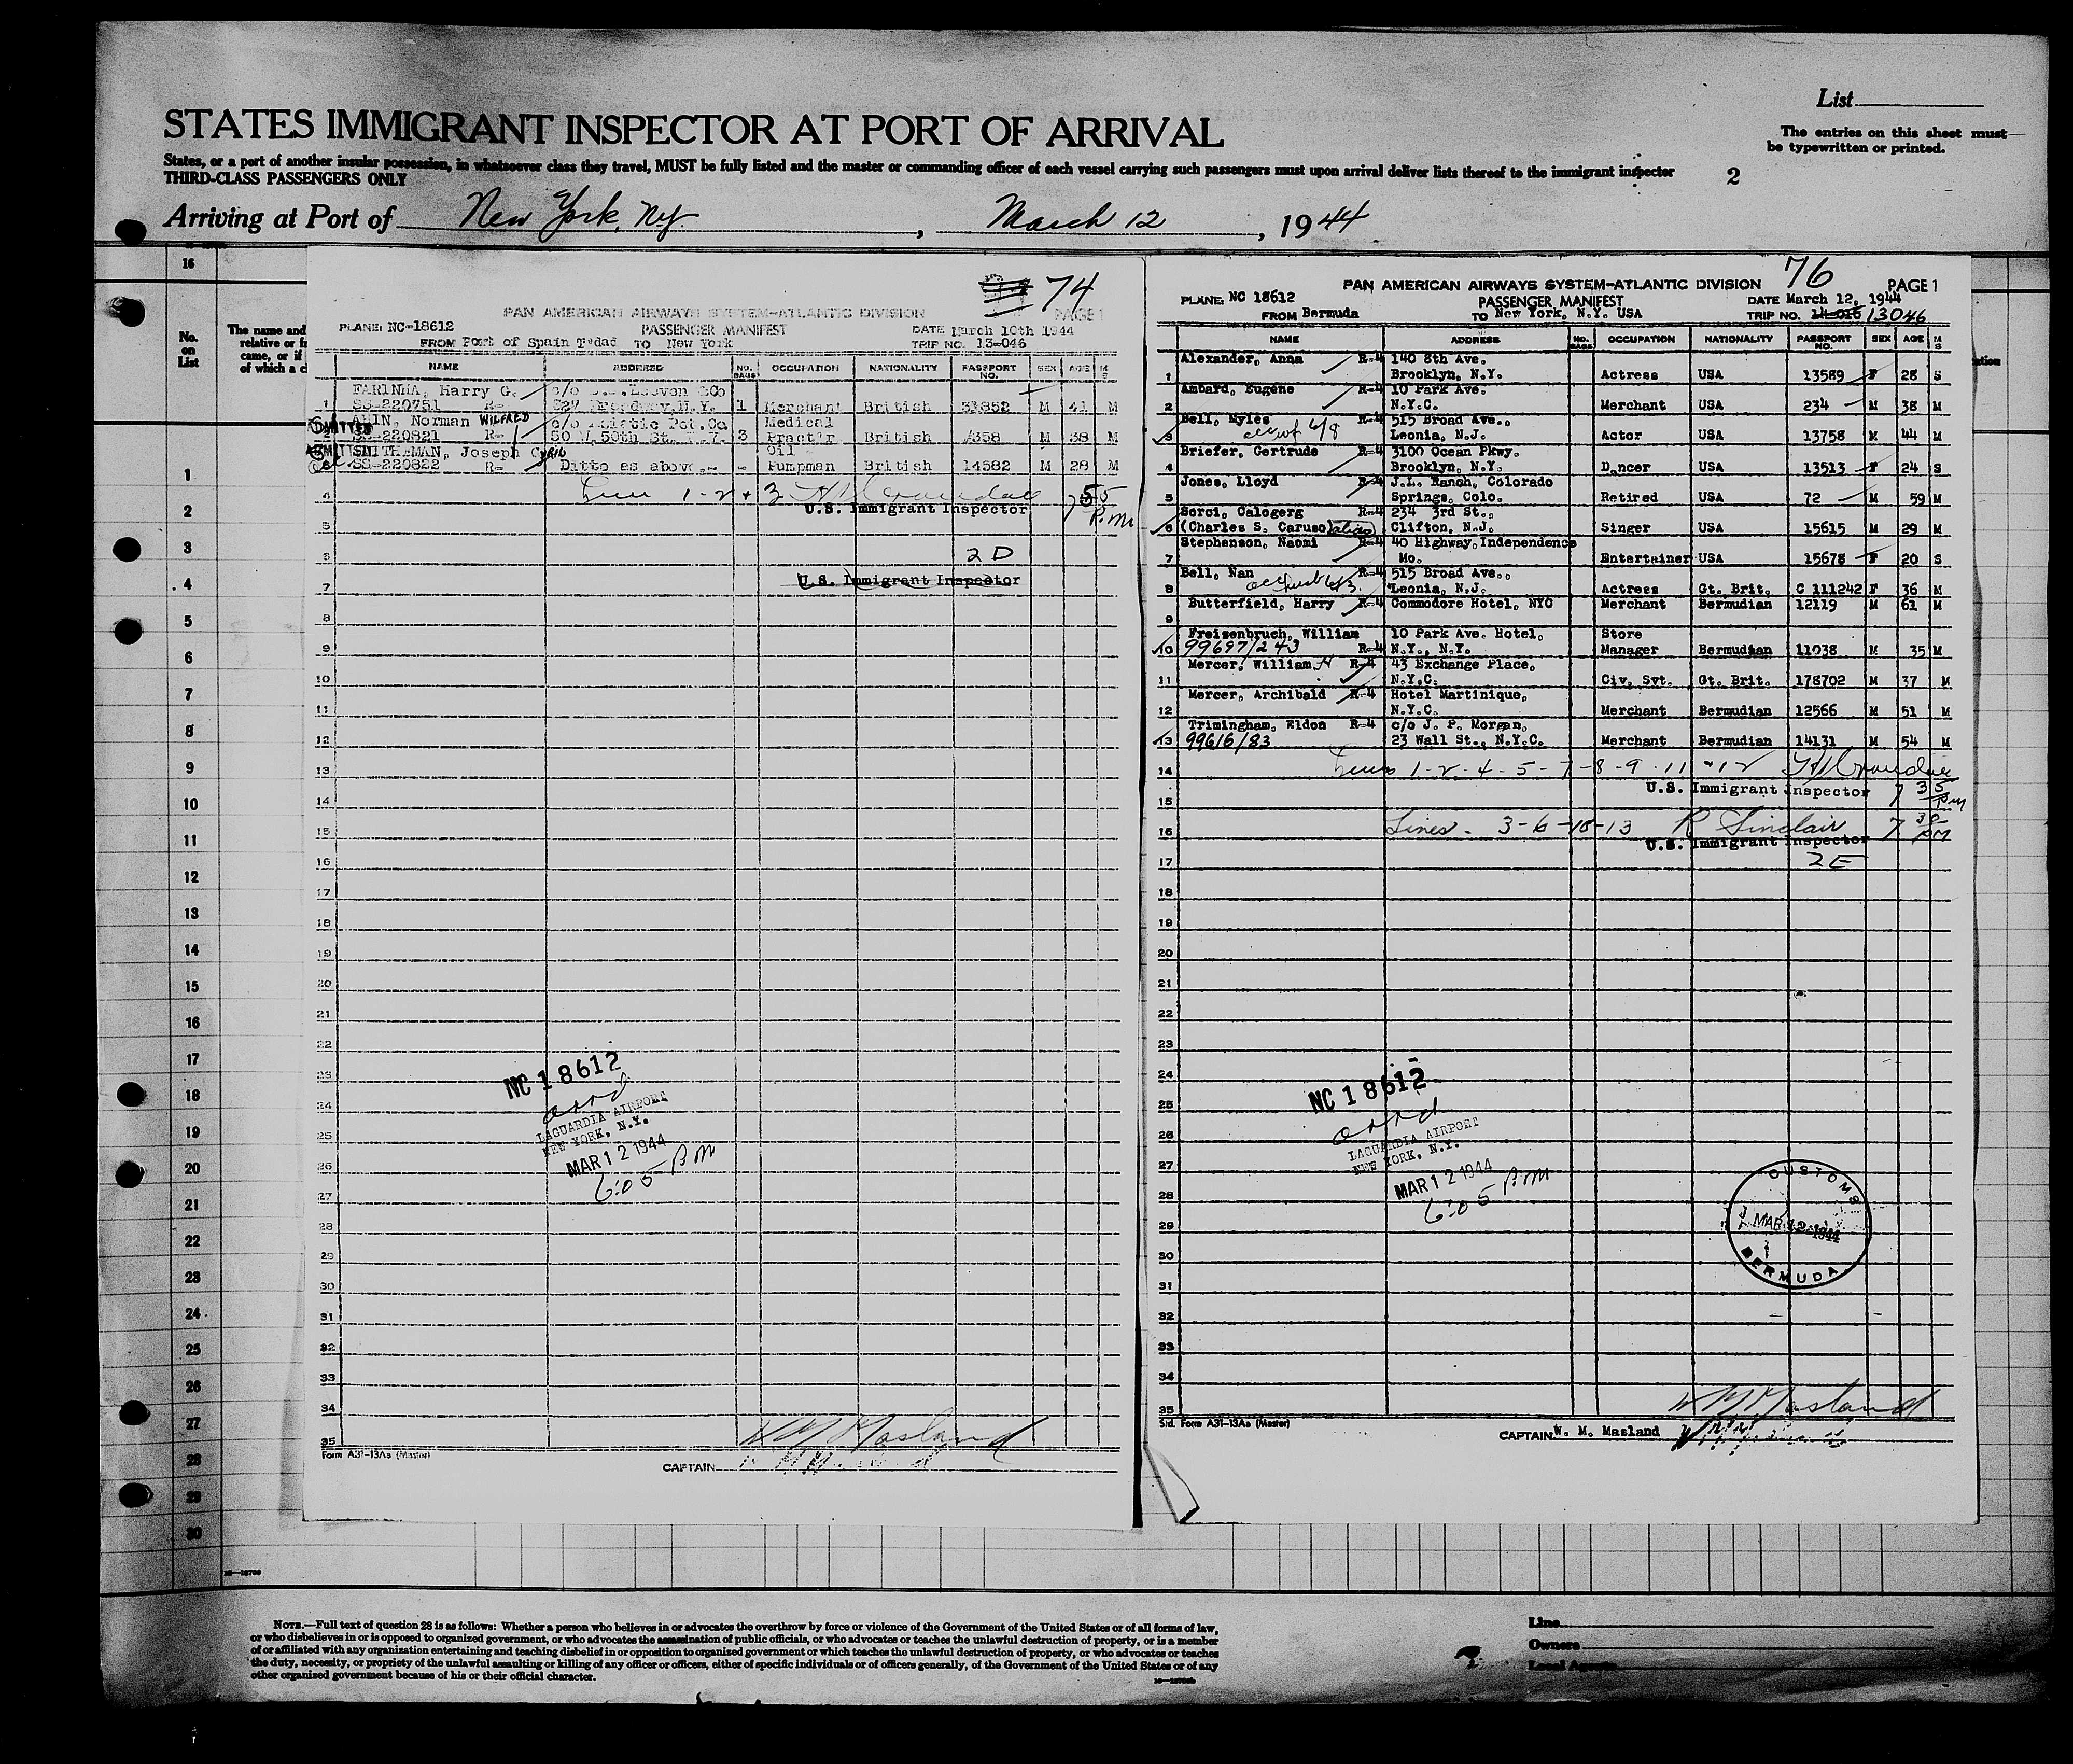 List
STATES IMMIGRANT INSPECTOR AT PORT OF ARRIVAL
The entries on this sheet must be typewritten or printed.
States, or a port of another insular possession, in whatsoever class they travel, MUST be fully listed and the master or commanding officer of each vessel carrying such passengers must upon arrival deliver lists thereof to the immigrant inspector
THIRD-CLASS PASSENGERS ONLY
2
Arriving at Port of New York, N.Y. , March 12 , 1944
16
No. on List
The name and
relative or fr
came, or if
of which a c
1
2
3
4
5
6
7
8
9
10
11
12
13
14
15
16
17
18
19
20
21
22
23
24
25
26
27
28
29
30
74
PAN AMERICAN AIRWAYS SYSTEM-ATLANTIC DIVISION PAGE 1
PLANE: NC-18612 PASSENGER MANIFEST DATE March 10th 1944
FROM Port of Spain T'dad TO New York TRIP NO. 13-046
NAME ADDRESS NO. BAGS OCCUPATION NATIONALITY PASSPORT NO. SEX AGE M S
FARINHA, Harry G. c/o &Co
1 SS-220751 R- N.Y. 1 Merchant British 33852 M 41 M
Norman WILFRED c/o Pet. Co Medical
2 SS-220821 R- 50 W. 50th St. N.Y. 3 Pract'r British 7358 M 38 M
ADMITTED SMITHEMAN, Joseph Cyril Oil
SS-220822 R- Ditto as above.- - Pumpman British 14582 M 28 M
4 1-2+3
U.S. Immigrant Inspector 7 55 P.M
5
6 2D
7 U.S. Immigrant Inspector
8
9
10
11
12
13
14
15
16
17
18
19
20
21
22
23
24
25
26
27
28
29
30
31
32
33
34
35
NC 18612
arrd
LAGUARDIA AIRPORT
NEW YORK, N.Y.
MAR 12 1944
6:05 P.M
W M Masland
Form A31-13As (Master)
CAPTAIN
76
PAN AMERICAN AIRWAYS SYSTEM-ATLANTIC DIVISION PAGE 1
PLANE: NC 18612 PASSENGER MANIFEST DATE March 12, 1944
FROM Bermuda TO New York, N.Y. USA TRIP NO. 13046
NAME ADDRESS NO. BAGS OCCUPATION NATIONALITY PASSPORT NO. SEX AGE M S
Alexander, Anna R-4 140 8th Ave.
1 Brooklyn, N.Y. Actress USA 13589 F 28 S
Ambard, Eugene R-4 10 Park Ave.
2 N.Y.C. Merchant USA 234 M 38 M
Bell, Myles R-4 515 Broad Ave.,
3 acc wf 4/8 Leonia, N.J. Actor USA 13758 M 44 M
Briefer, Gertrude R-4 3100 Ocean Pkwy.
4 Brooklyn, N.Y. Dancer USA 13513 F 24 S
Jones, Lloyd R-4 J.L. Ranch, Colorado
5 Springs, Colo. Retired USA 72 M 59 M
Sorci, Calogerg R-4 234 3rd St.,
6 (Charles S. Caruso alias) Clifton, N.J. Singer USA 15615 M 29 M
Stephenson, Naomi R-4 40 Highway, Independence
7 Mo. Entertainer USA 15678 F 20 S
Bell, Nan R-4 515 Broad Ave.,
8 acc husb Leonia, N.J. Actress Gt. Brit. C 111242 F 36 M
Butterfield, Harry R-4 Commodore Hotel, NYC Merchant Bermudian 12119 M 61 M
9
Freisenbruch, William 10 Park Ave. Hotel, Store
10 99697/243 R-4 N.Y., N.Y. Manager Bermudian 11038 M 35 M
Mercer, William H R-4 43 Exchange Place,
11 N.Y.C. Civ. Svt. Gt. Brit. 178702 M 37 M
Mercer, Archibald R-4 Hotel Martinique,
12 N.Y.C. Merchant Bermudian 12566 M 51 M
Trimingham, Eldon R-4 c/o J. P. Morgan,
13 99616/83 23 Wall St., N.Y.C. Merchant Bermudian 14131 M 54 M
14 Lines 1-2-4-5-7-8-9-11+12
U.S. Immigrant Inspector 7 35 PM
15
16 Lines - 3-6-10-13 R Sinclair 7 30 PM
U.S. Immigrant Inspector
17 2E
18
19
20
21
22
23
24
25
26
27
28
29
30
31
32
33
34
35
NC 18612
arrd
LAGUARDIA AIRPORT
NEW YORK, N.Y.
MAR 12 1944
6:05 P.M
CUSTOMS
MAR 12 1944
BERMUDA
W M Masland
Std. Form A31-13As (Master)
CAPTAIN W. M. Masland
NOTE.—Full text of question 28 is as follows: Whether a person who believes in or advocates the overthrow by force or violence of the Government of the United States or of all forms of law,
or who disbelieves in or is opposed to organized government, or who advocates the assassination of public officials, or who advocates or teaches the unlawful destruction of property, or is a member
of or affiliated with any organization entertaining and teaching disbelief in or opposition to organized government or which teaches the unlawful destruction of property, or who advocates or teaches
the duty, necessity, or propriety of the unlawful assaulting or killing of any officer or officers, either of specific individuals or of officers generally, of the Government of the United States or of any
other organized government because of his or their official character.
Line
Owners
Local Agents